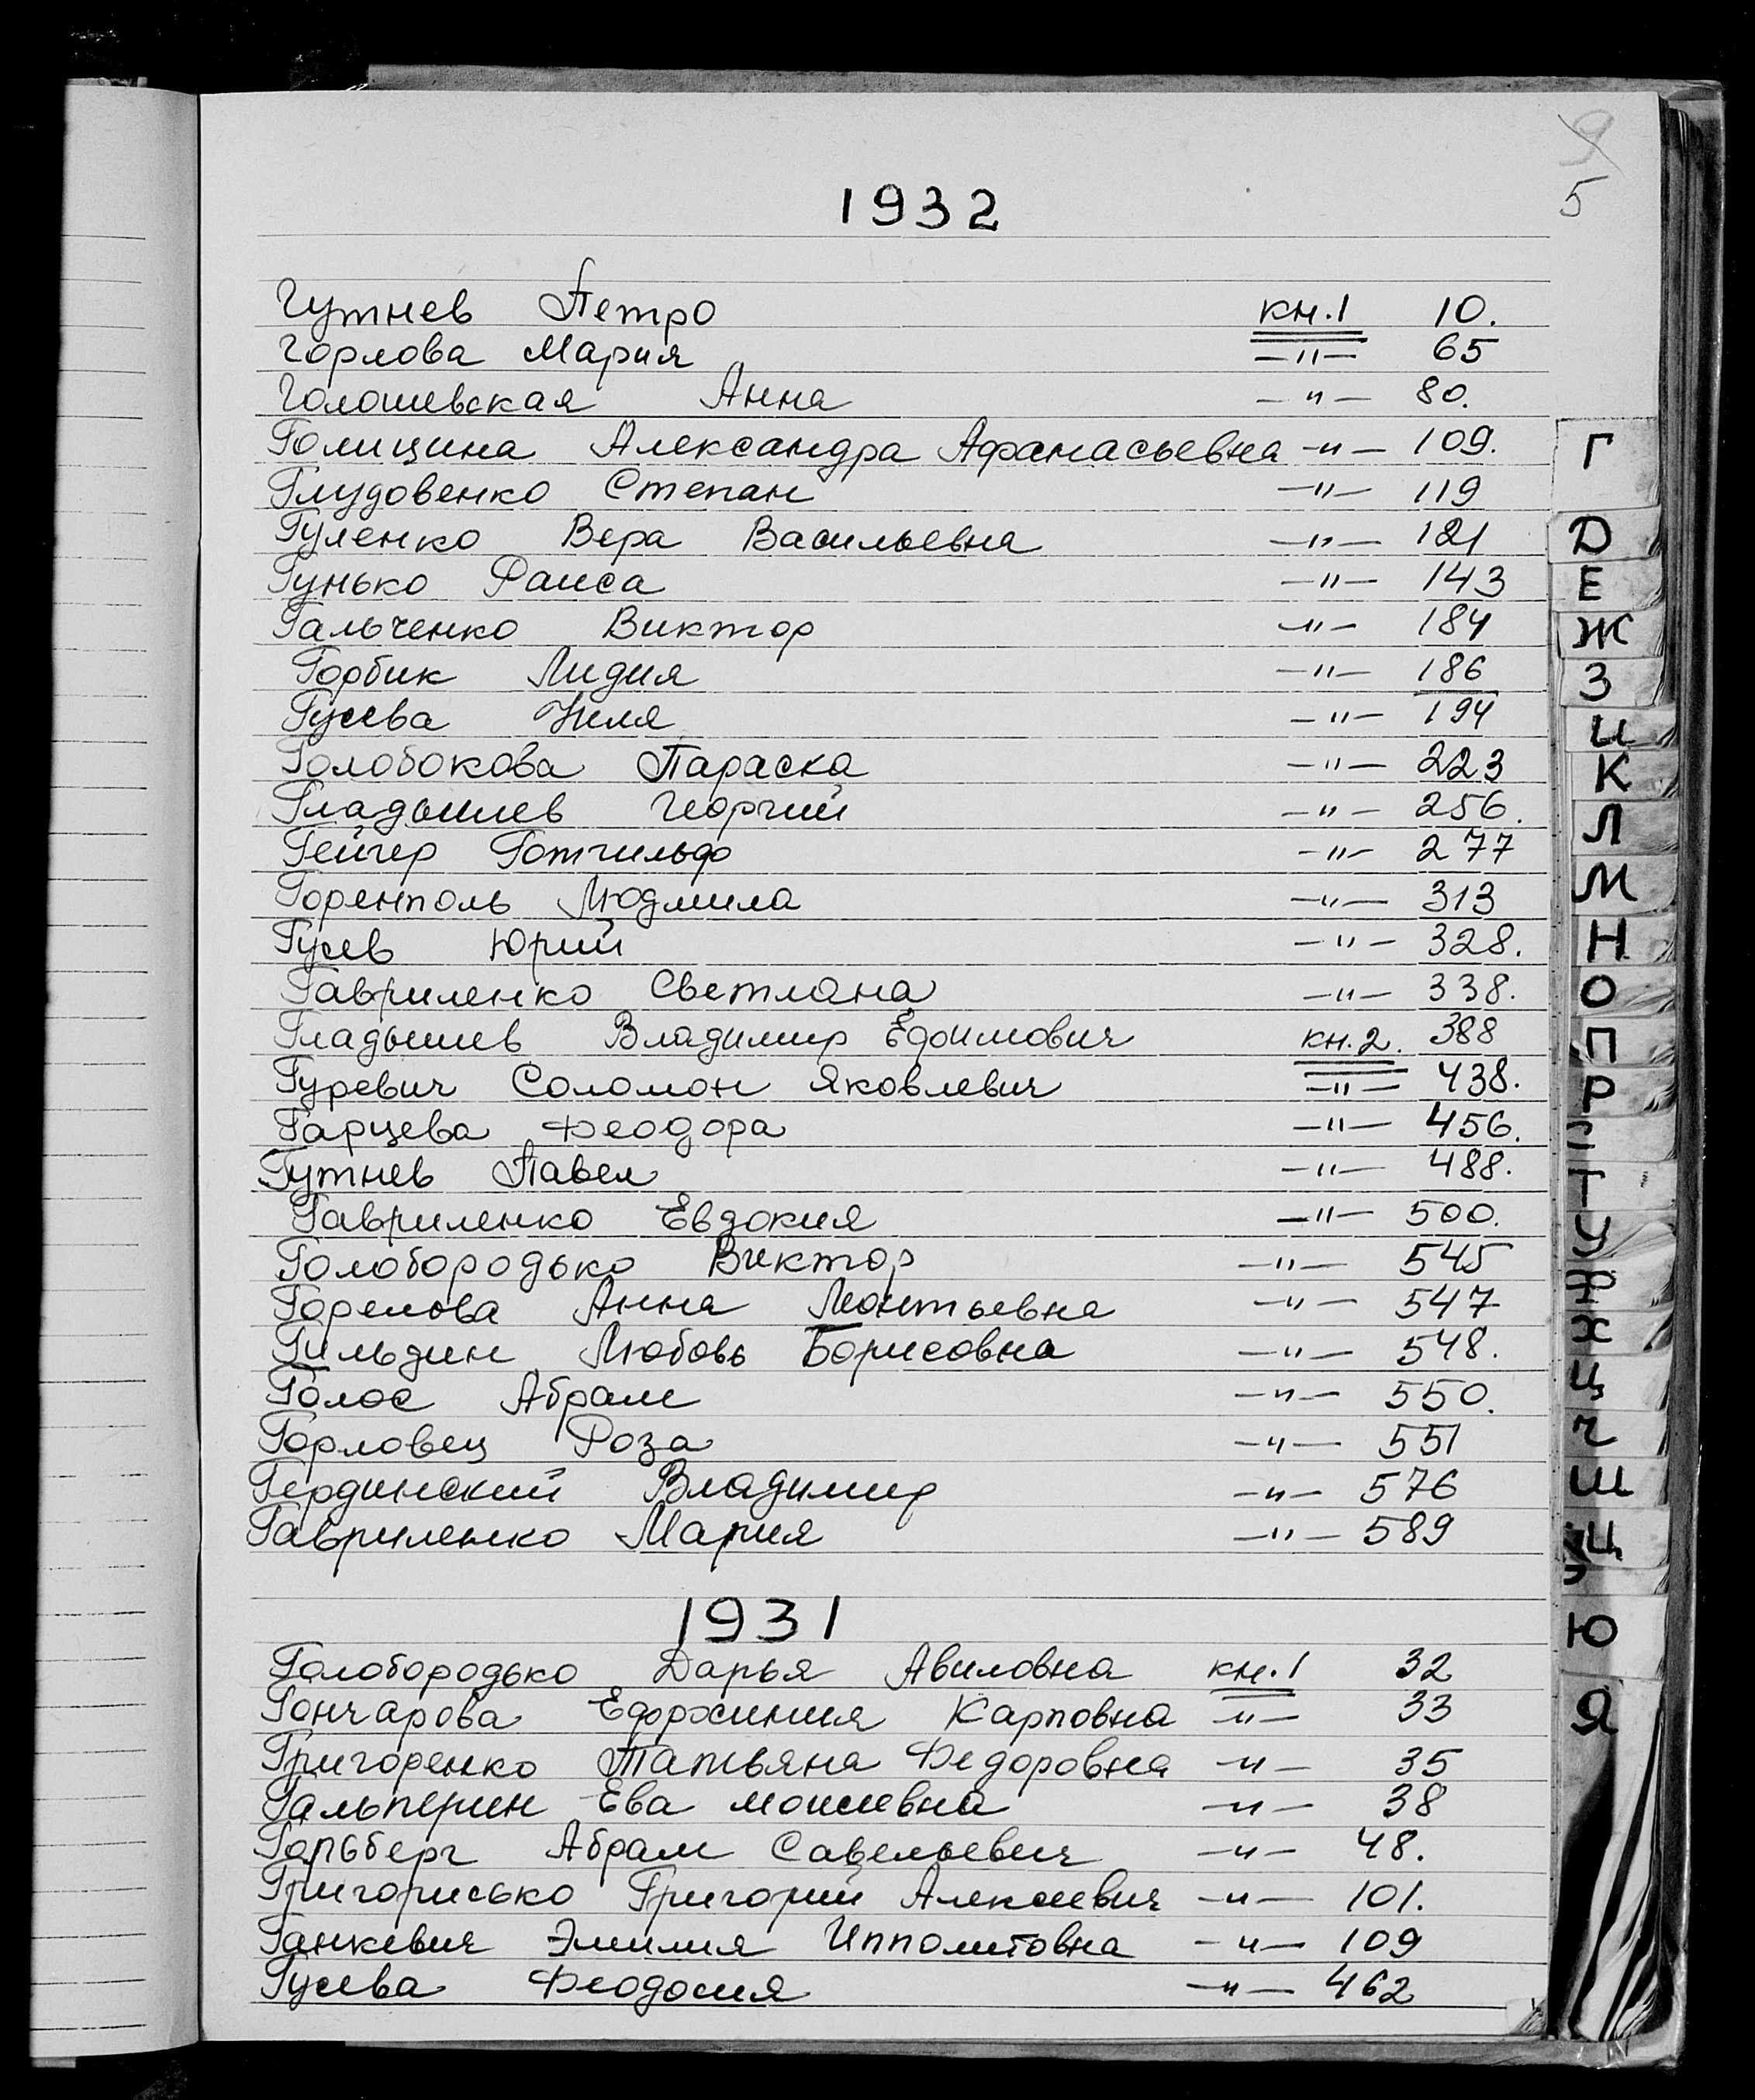 9
5
1932
Гутнев Петро кн.1 10.
Горлова Мария —"— 65
Голошевская Анна —"— 80.
Голицина Александра Афанасьевна —"— 109.
Глудовенко Степан —"— 119
Гуленко Вера Васильевна —"— 121
Гунько Раиса —"— 143
Гальченко Виктор —"— 184
Горбик Лидия —"— 186
Гусева —"— 194
Голобокова Параска —"— 223
Гладышев Георгий —"— 256.
Гейгер Готгильф —"— 277
Горенполь Людмила —"— 313
Гусев Юрий —"— 328.
Гавриленко Светлана —"— 338.
Гладышев Владимир Ефимович кн.2. 388
Гуревич Соломон Яковлевич —"— 438.
Гарцева Феодора —"— 456.
Гутнев Павел —"— 488.
Гавриленко Евдокия —"— 500.
Голобородько Виктор —"— 545
Горелова Анна Леонтьевна —"— 547
Гильдин Любовь Борисовна —"— 548.
Голос Абрам —"— 550.
Горловец Роза —"— 551
Гердинский Владимир —"— 576
Гавриленко Мария —"— 589
1931
Голобородько Дарья Авиловна кн.1 32
Гончарова Ефрхиния Карповна —"— 33
Григоренко Татьяна Федоровна —"— 35
Гальперин Ева Моисевна —"— 38
Гольберг Абрам Савельевич —"— 48.
Григорисько Григорий Алексеевич —"— 101.
Ганкевич Эмилия Ипполитовна —"— 109
Гусева Феодосия —"— 462
Г
Д
Е
Ж
З
И
К
Л
М
Н
О
П
Р
Т
У
Ф
Х
Ц
Ч
Ш
Щ
Ю
Я